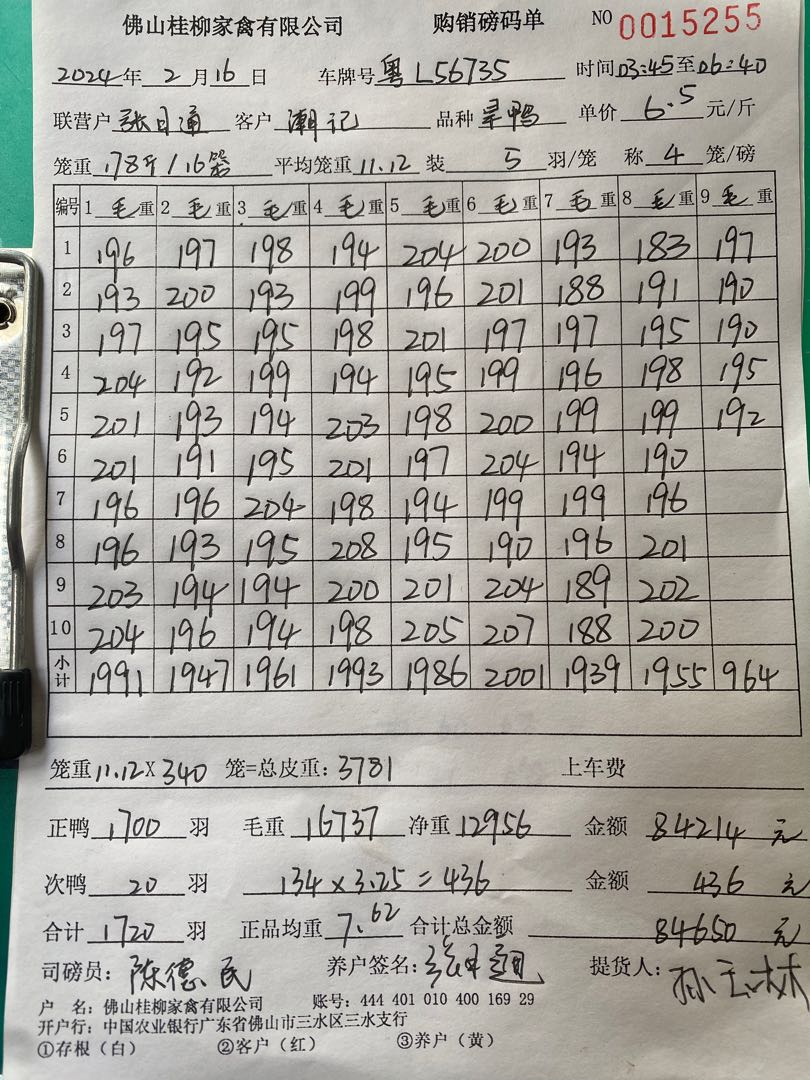 佛山桂柳家禽有限公司 购销磅码单 NO 0015255
2024年2月16日 车牌号 粤L56735 时间03:45至06:40
联营户 张日通 客户 潮记 品种 旱鸭 单价 6.5 元/斤
笼重 178斤/16 平均笼重 11.12 装 5 羽/笼 称 4 笼/磅
编号 1 毛重 2 毛重 3 毛重 4 毛重 5 毛重 6 毛重 7 毛重 8 毛重 9 毛重
1 196 197 198 194 204 200 193 183 197
2 193 200 193 199 196 201 188 191 190
3 197 195 195 198 201 197 197 195 190
4 204 192 199 194 195 199 196 198 195
5 201 193 194 203 198 200 199 199 192
6 201 191 195 201 197 204 194 190
7 196 196 204 198 194 199 199 196
8 196 193 195 208 195 190 196 201
9 203 194 194 200 201 204 189 202
10 204 196 194 198 205 207 188 200
小计 1991 1947 1961 1993 1986 2001 1939 1955 964
笼重11.12×340 笼=总皮重:3781 上车费
正鸭 1700 羽 毛重 16737 净重 12956 金额 84214 元
次鸭 20 羽 134×3.25=436 金额 436 元
合计 1720 羽 正品均重 7.62 合计总金额 84650 元
司磅员: 陈德民 养户签名: 提货人:
户 名: 佛山桂柳家禽有限公司 账号: 444 401 010 400 169 29
开户行: 中国农业银行广东省佛山市三水区三水支行
①存根(白) ②客户(红) ③养户(黄)